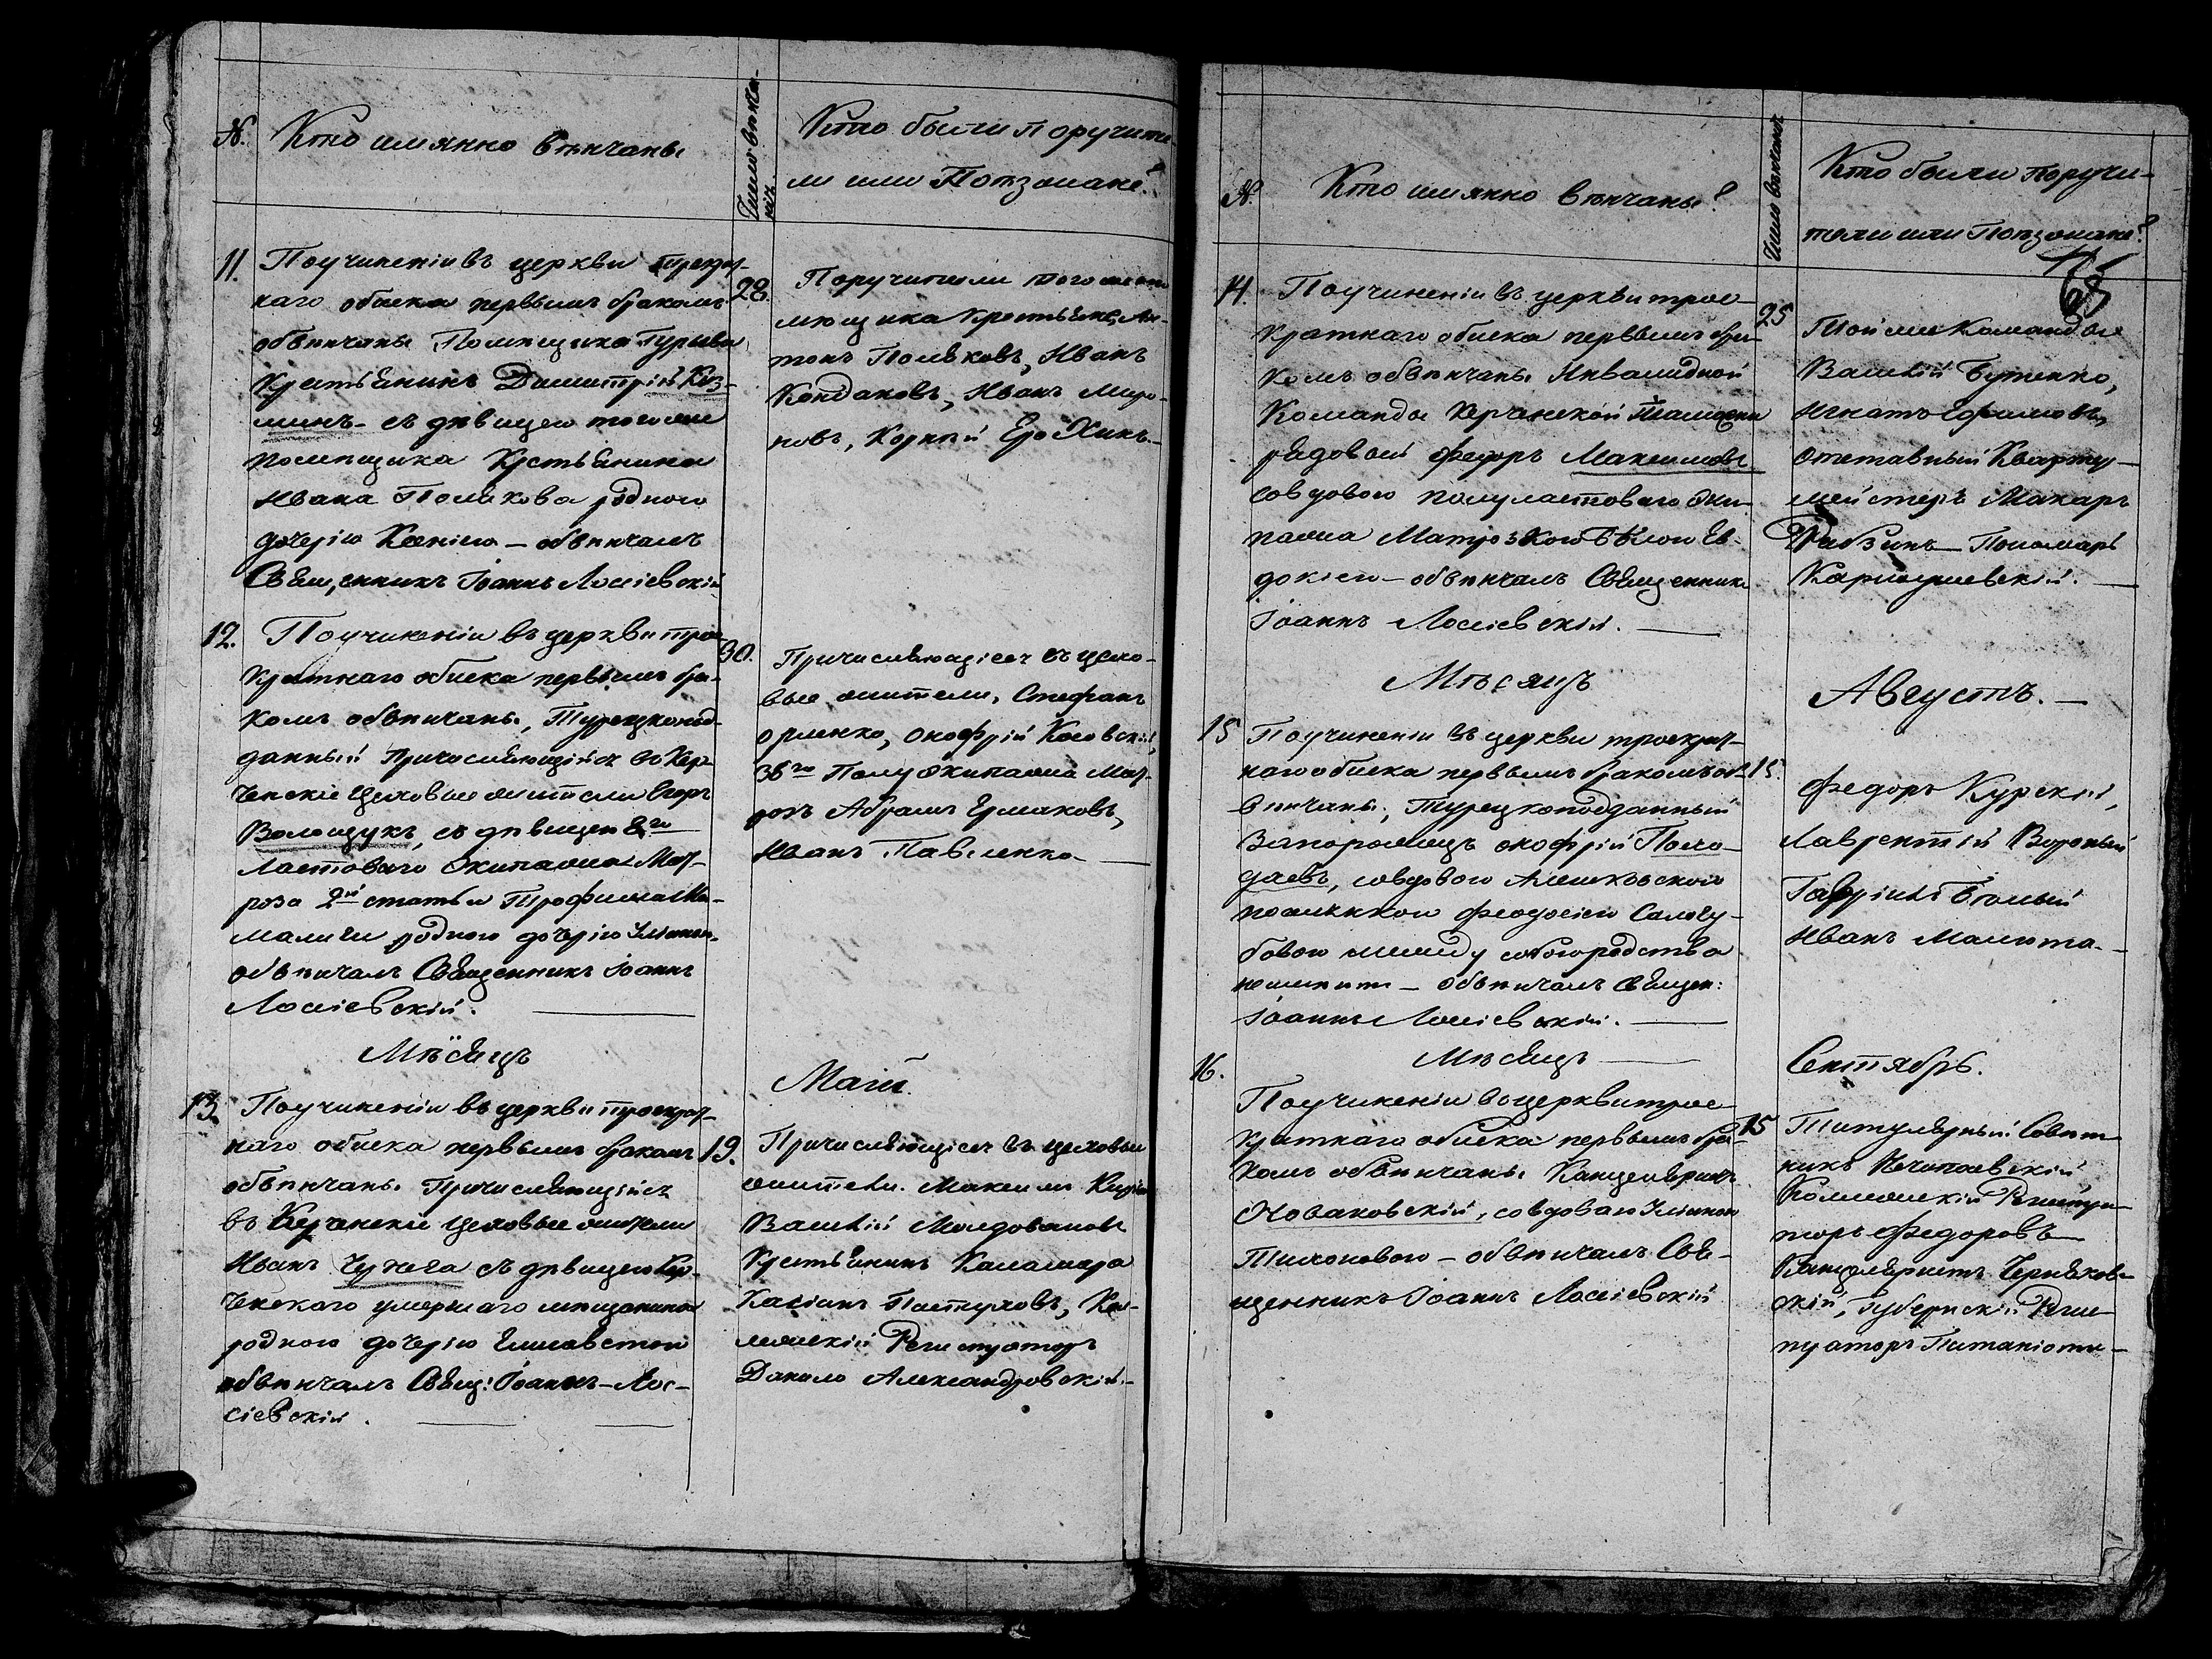 №.
Кто имянно вѣнчаны
Число вѣнча-
нія.
Кто были Поручите
ли или Поѣзжане?
11.
По учиненіи въ церкви троекрат-
наго обыска первымъ бракомъ
обвѣнчаны Помѣщика Гурьева
Крестьянинъ Димитрій Куз-
минъ - съ дѣвицею тогоже
помѣщика Крестьянина
Ивана Полякова родною
дочерію Ксеніею - обвѣнчалъ
Священникъ Іоаннъ Лосіевскій
28.
Поручители тогоже по
мѣщика крестьяне, Ан-
тонъ Поляковъ, Иванъ
Кондаковъ, Иванъ Миро-
новъ, Корнѣй Ерохинъ.
12.
По учиненіи въ церкви трое
кратнаго обыска первымъ бра-
комъ обвѣнчаны, Турецкопод-
данный причисляющійся въ Кер-
ченскіе Цеховые жители Егоръ
Волощукъ, съ дѣвицею 8го
Ластоваго Экипажа Мат-
роза 2й статьи Трофима Ма-
малиги родною дочерію Уліяною
обвѣнчалъ Священникъ Іоаннъ
Лосіевскій.
30.
Причисляющіеся въ цехо-
вые жители, Стефанъ
Орленко, Онофрій Косовскій,
38го Полуэкипажа Мат-
розъ Абрамъ Ермаковъ,
Иванъ Павленко
Мѣсяцъ
Маій.
13.
По учиненіи въ церкви троекрат-
наго обыска первымъ бракомъ
обвѣнчаны Причисляющійся
въ Керченскіе Цеховые жители
Иванъ Чужега съ дѣвицею Кер-
ченскаго умершаго мѣщанина
родною дочерію Елисаветою
обвѣнчалъ Свящ: Іоаннъ - Лос-
сіевскій.
19.
Причисляющіеся въ цеховые
жители Максимъ
Василій Молдовановъ
Крестьянинъ Каламара
Касіанъ Пастуховъ, Кол-
лежскій Регистраторъ
Данило Александровскій.
№.
Кто имянно вѣнчаны?
Число вѣнчанія
Кто были Поручи-
тели или Поѣзжане?
65
14.
По учиненіи въ церкви трое-
кратнаго обыска первымъ бра-
комъ обвѣнчаны Инвалидной
Команды Керченской Таможни
рядовой Федоръ Максимовъ
со вдовою полуластоваго Эки-
пажа Матрозкою Бѣлою Ев-
докіею - обвѣнчалъ Священникъ
Іоаннъ Лосіевскій.
25
Той же Команды
Василій Бутенко,
Игнатъ Ефимовъ,
Отставный Кварти-
мейстеръ Макаръ
Рябзинъ Пономарь
Карнаушевскій.
Мѣсяцъ
Августъ.
15
По учиненіи въ церкви троекрат-
наго обыска первымъ бракомъ об-
вѣнчаны, Турецкоподданный
Запорожецъ Онофрій Поло-
даевъ, со вдовою Алешковскою
посѣлянкою Феодосіею Сологу-
бовою между собою родства
неимѣютъ - обвѣнчалъ Священ:
Іоаннъ Лосіевскій.
15.
Федоръ Курскій,
Лаврентій Вороный
Гавріилъ Бѣлый
Иванъ Малюта.
Мѣсяцъ
Сентябрь.
16.
По учиненіи въ церкви трое-
кратнаго обыска первымъ бра-
комъ обвѣнчаны Канцеляристъ
Очоваковскій, со вдоваю Уліяною
Тихоновою - обвѣнчалъ Свя-
щенникъ Іоаннъ Лосіевскій
15
Титулярный Совѣт
никъ Нечипаевскій
Коллежскій Регистра
торъ Федоровъ
Канцеляристъ Черняков-
скій, Губернскій Реги
страторъ Питаніоти